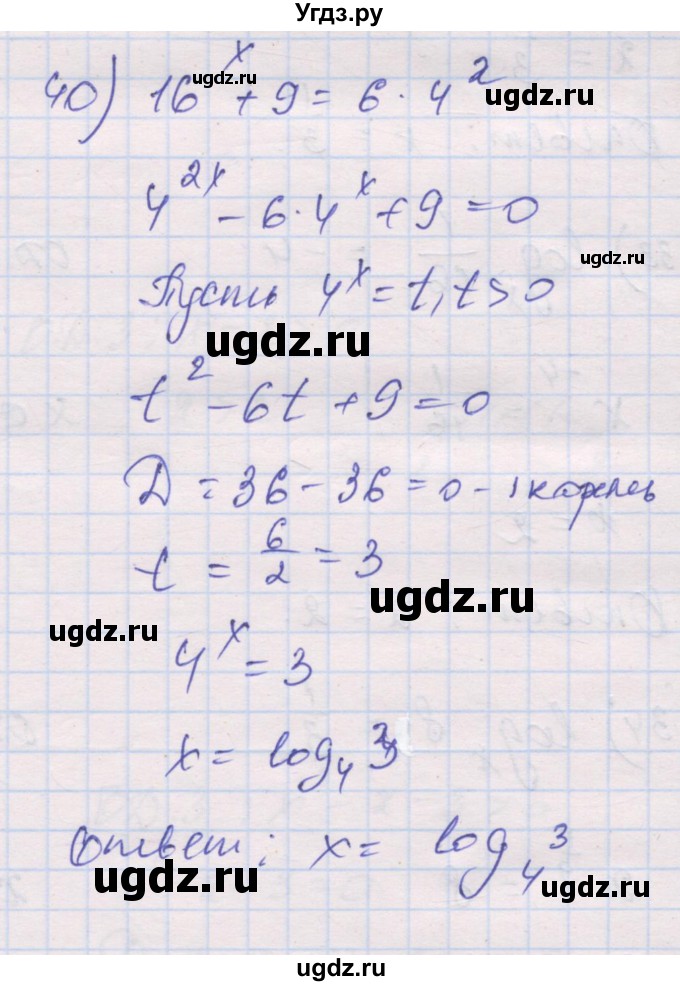 Угдз.ру
40) 16^x + 9 = 6 · 4^2
ugdz.ru
ugdz.ru
4^2x - 6 · 4^x + 9 = 0
Пусть 4^x = t, t > 0
ugdz.ru
ugdz.ru
t^2 - 6t + 9 = 0
D = 36 - 36 = 0 - 1 корень
t = 6/2 = 3
ugdz.ru
ugdz.ru
4^x = 3
x = log_4 3
ugdz.ru
Ответ: x = log_4 3
ugdz.ru
ugdz.ru
ugdz.ru